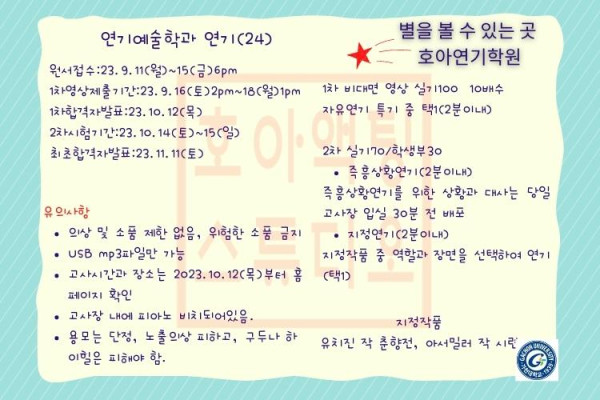 연기예술학과 연기(24)
원서접수:23.9.11(월)~15(금)6pm
1차영상제출기간:23.9.16(토)2pm~18(월)1pm
1차합격자발표:23.10.12(목)
2차시험기간:23.10.14(토)~15(일)
최초합격자발표:23.11.11(토)
유의사항
의상 및 소품 제한 없음, 위험한 소품 금지
USB mp3파일만 가능
고사시간과 장소는 2023.10.12(목)부터 홈
페이지 확인
고사장 내에 피아노 비치되어있음.
용모는 단정, 노출의상 피하고, 구두나 하
이힐은 피해야 함.
별을 볼 수 있는 곳
호아연기학원
1차 비대면 영상 실기100 10배수
자유연기 특기 중 택1(2분이내)
2차 실기70/학생부30
즉흥상황연기(2분이내)
즉흥상황연기를 위한 상황과 대사는 당일
고사장 입실 30분 전 배포
지정연기(2분이내)
지정작품 중 역할과 장면을 선택하여 연기
(택1)
지정작품
유치진 작 춘향전, 아서밀러 작 시련
호아액팅
스튜디오
GACHON UNIVERSITY